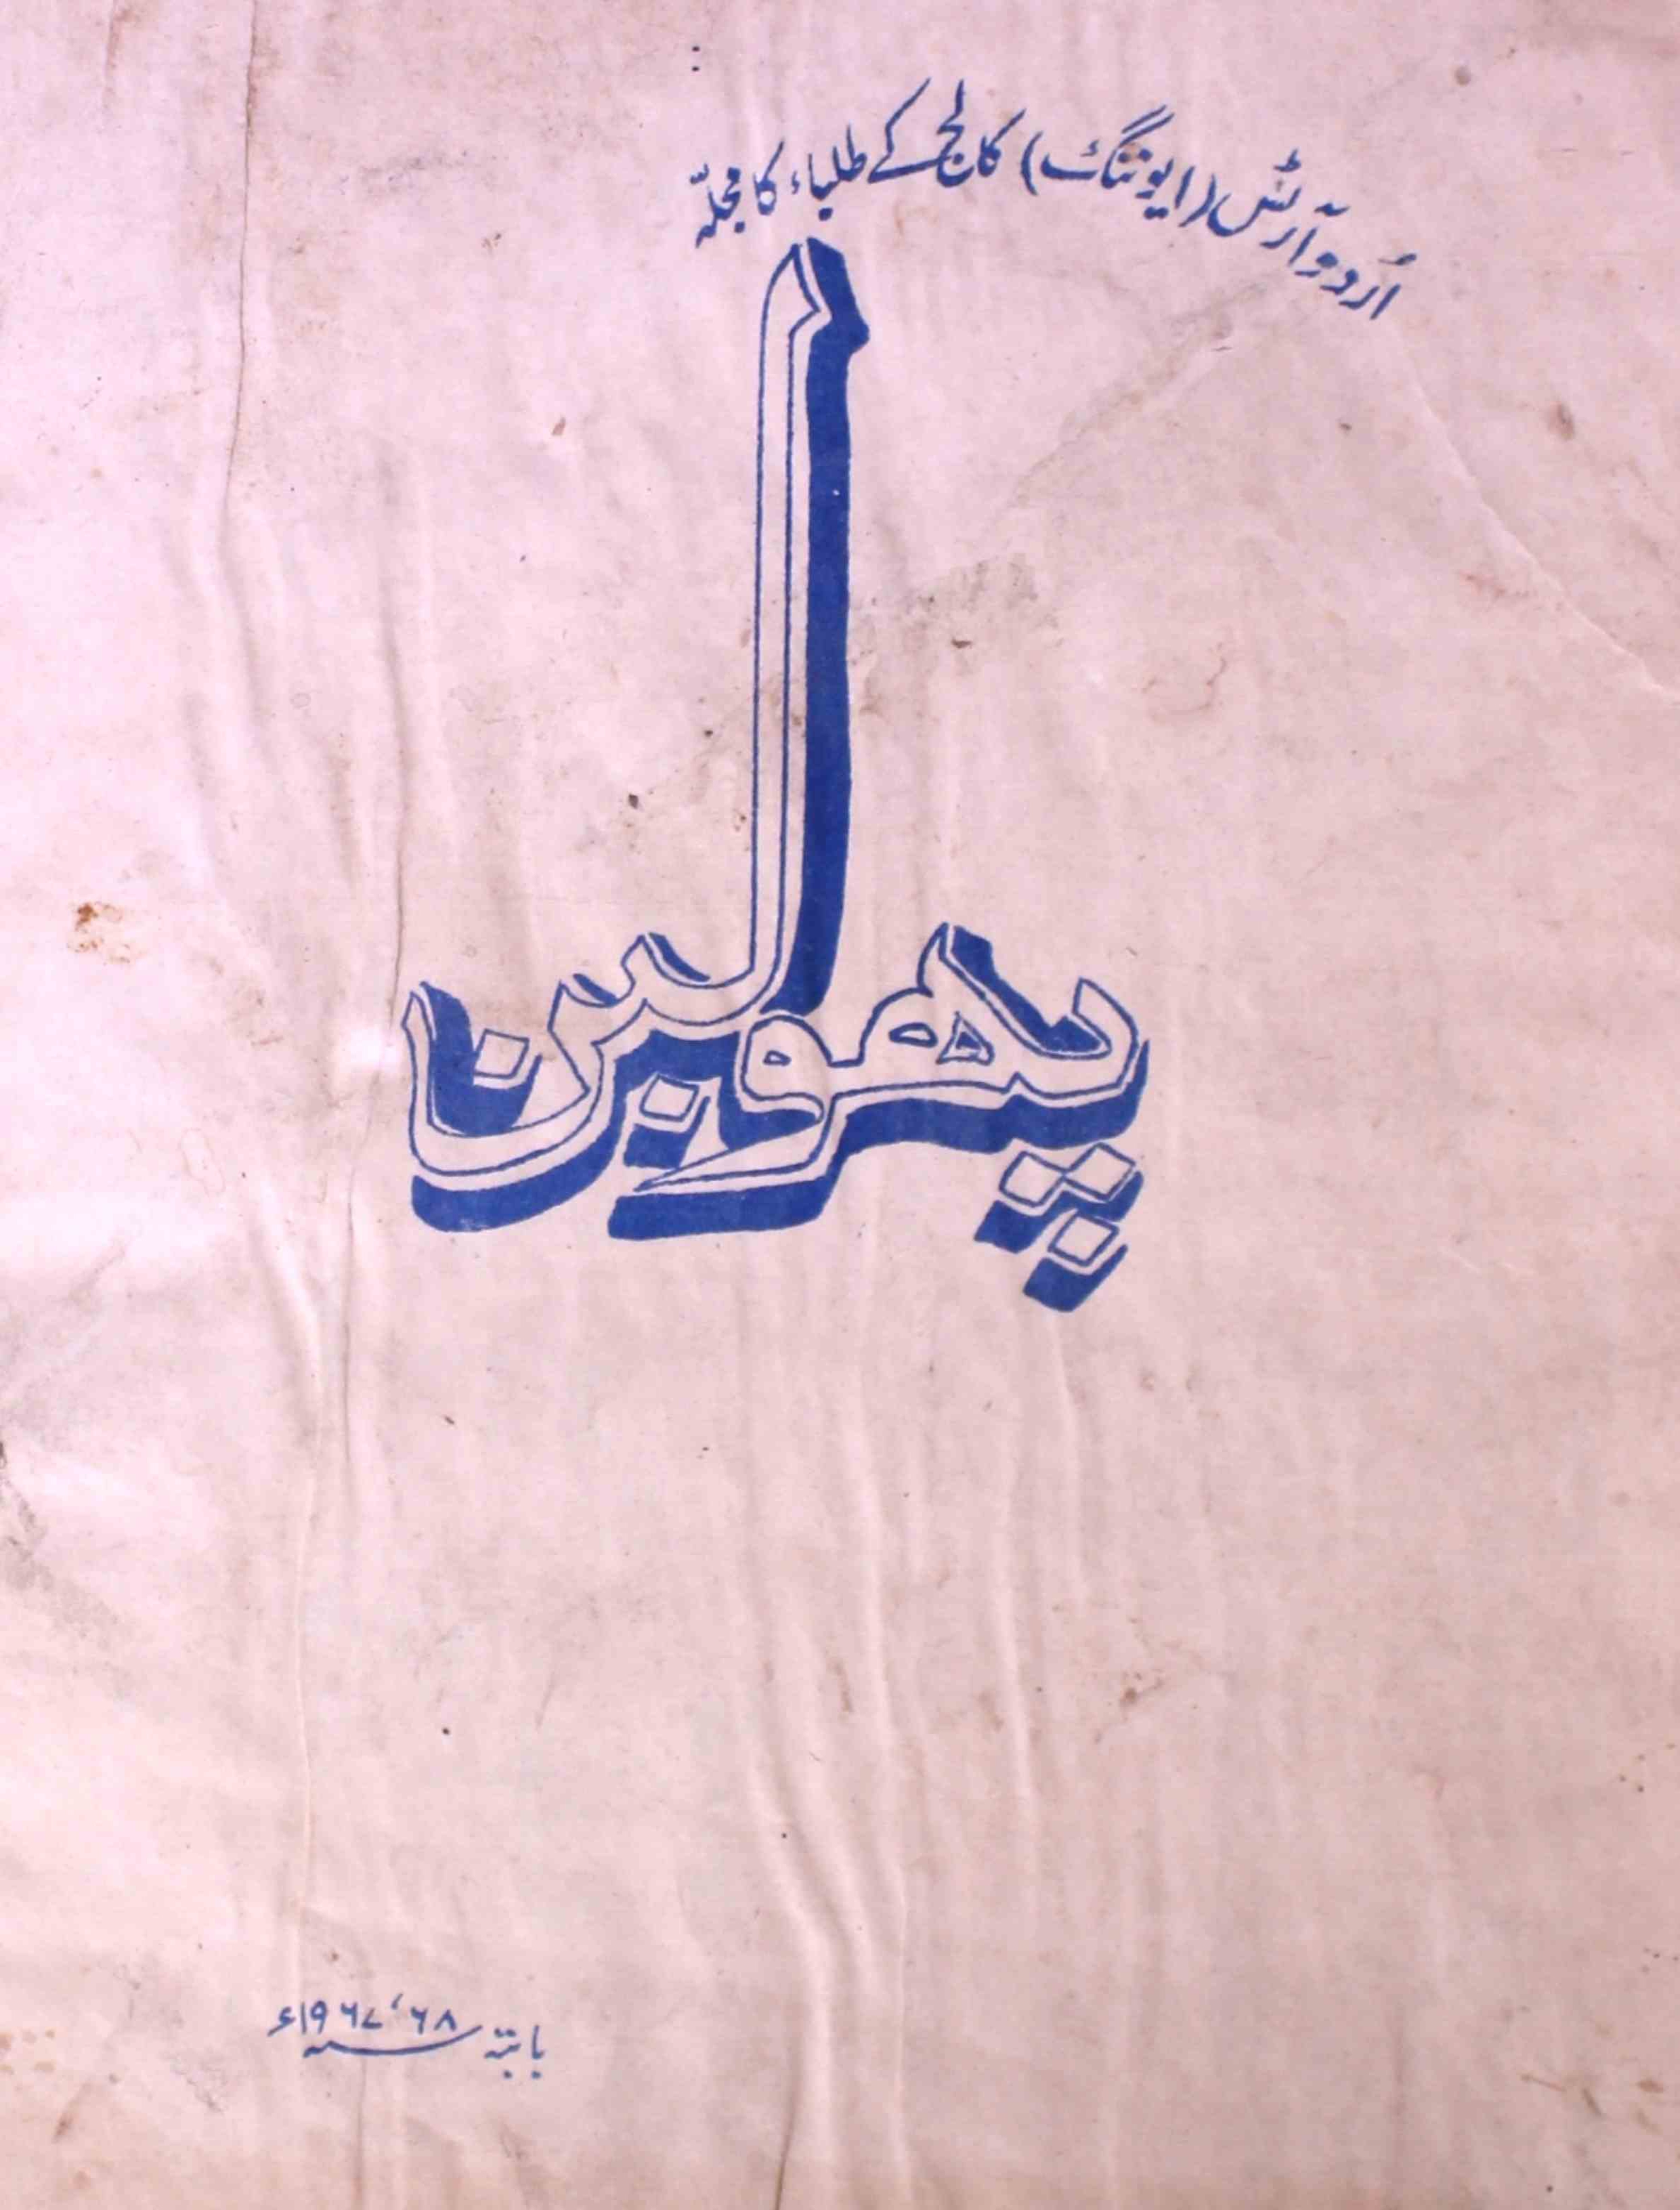 اُردو آرٹس (ایوننگ) کالج کے طلباء کا مجلّہ
پھولبن
بابتہ سنہ ۶۸، ۱۹۶۷ء